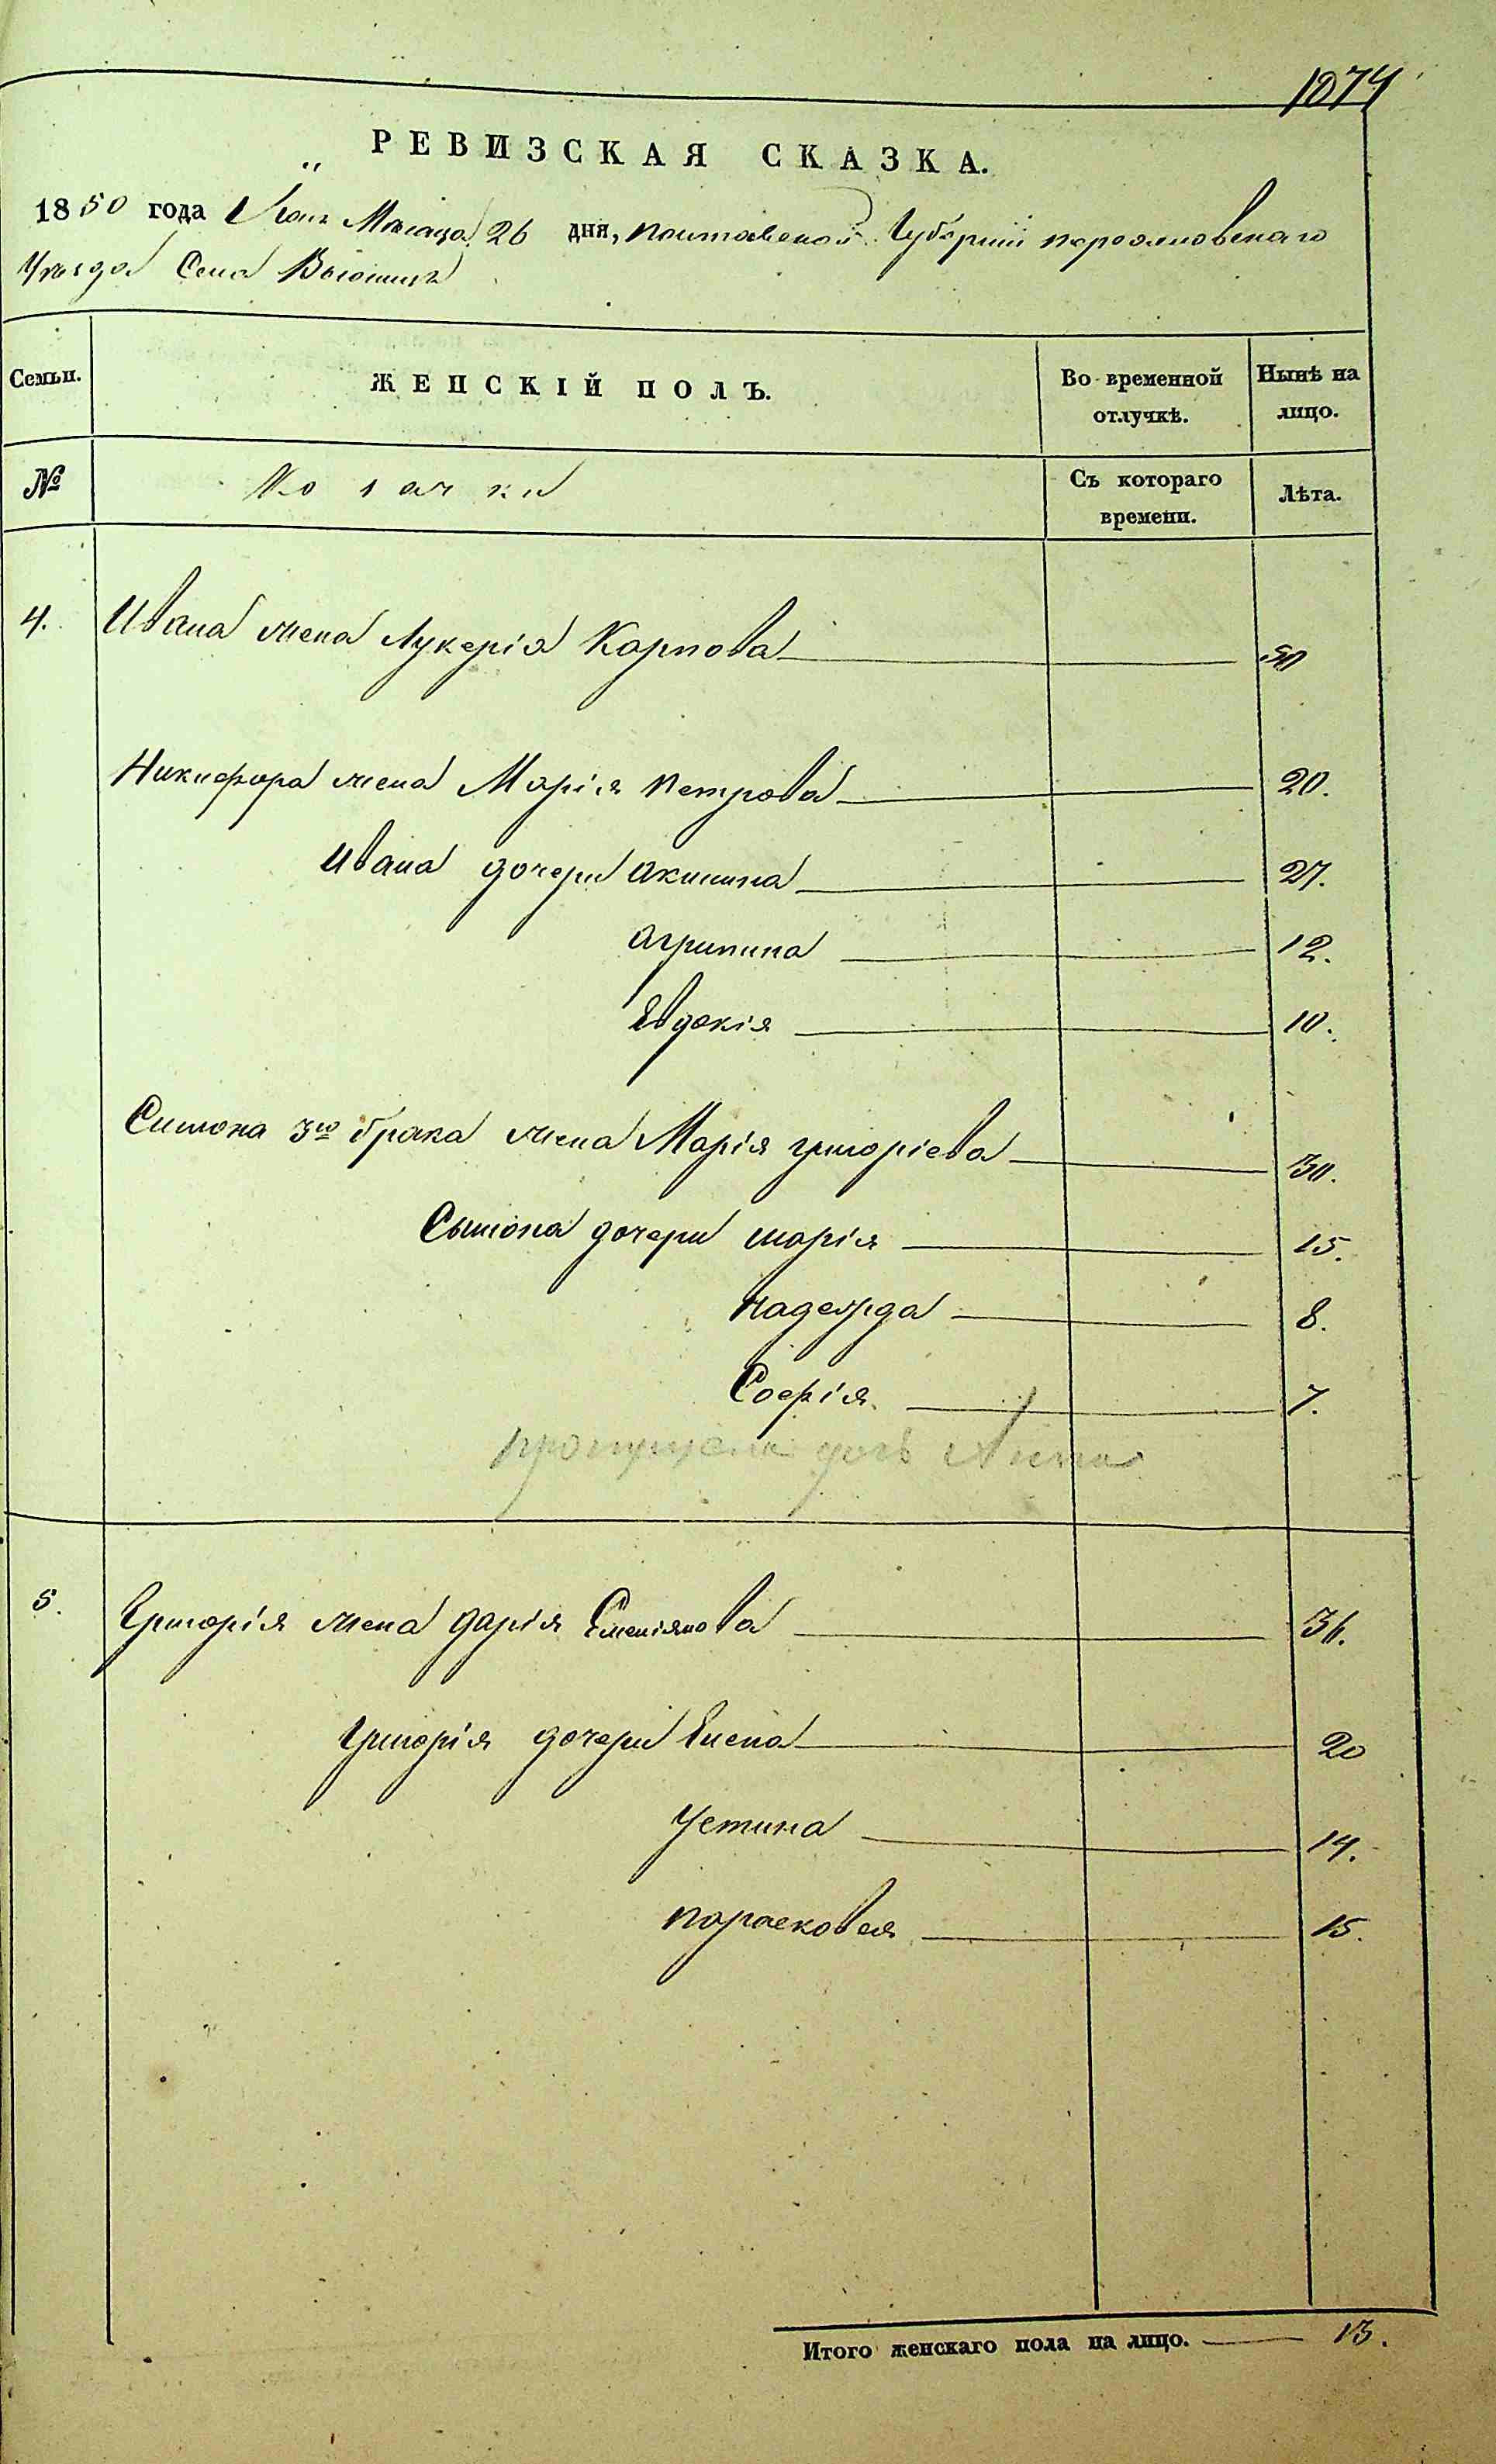 1074
РЕВИЗСКАЯ СКАЗКА.
1850 года Мѣсяца 26 дня, Полтавской Губерніи переяславскаго
Уѣзда Села
Семьи. ЖЕНСКІЙ ПОЛЪ. Во временной отлучкѣ. Нынѣ на лицо.
№ Козачки Съ котораго времени. Лѣта.
4. Ивана жена Лукерія Карпова 50
Никифора жена Марія петрова 20.
Ивана дочери Акилина 27.
Агрипина 12.
Евдокія 10.
Симона 3го брака жена Марія григоріева 30.
Сымона дочери марія 15.
надежда 8.
Софія. 7.
пропущена дочь Анна
5. Григорія жена дарія Емеліянова 36.
Григорія дочери Елена 20
Устина 14.
парасковея 15.
Итого женскаго пола на лицо. 13.